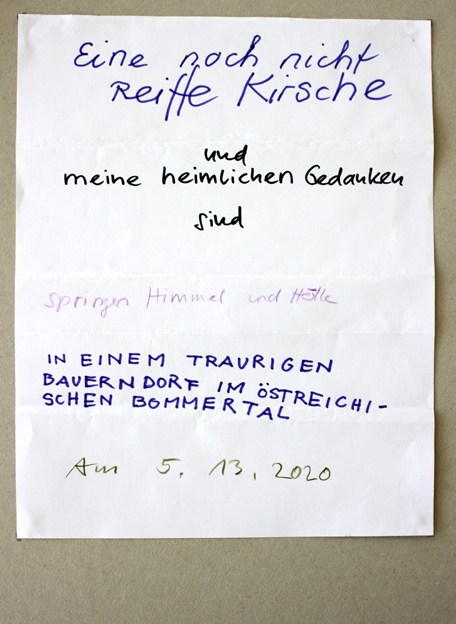 Eine noch nicht
Reiffe Kirsche
und
meine heimlichen Gedanken
sind
springen Himmel und Hölle
IN EINEM TRAURIGEN
BAUERNDORF IM ÖSTREICHI-
SCHEN BOMMERTAL
Am 5. 13. 2020